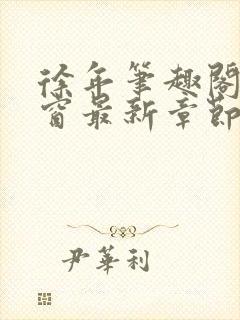 徐年筆趣閣
窗最新章節
尹華利